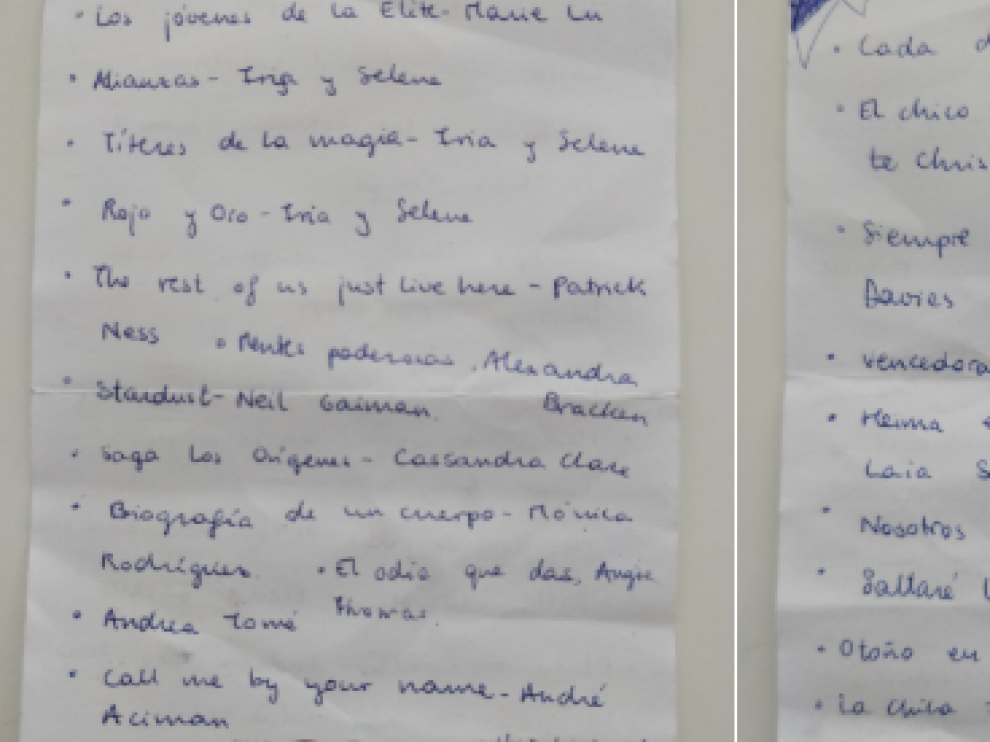 • Los jóvenes de la Élite- Marie Lu
• Alianzas- Iria y Selene
• Títeres de la magia- Iria y Selene
• Rojo y Oro - Iria y Selene
• The rest of us just live here - Patrick
Ness
• Mentes poderosas. Alexandra
Bracken
• Stardust- Neil Gaiman.
• Saga Los Orígenes - Cassandra Clare
• Biografía de un cuerpo- Mónica
Rodríguez.
• El odio que das, Angie
Thomas.
• Andrea Tomé
• Call me by your name- André
Aciman
• Cada
• El chico
te Chris
• Siempre
Davies
• Vencedora
• Heima
Laia S
• Nosotros
• Saltaré
• Otoño en
• La chica